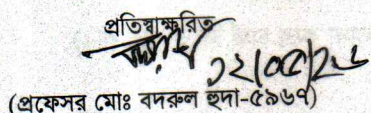 প্রতিস্বাক্ষরিত
(প্রফেসর মোঃ বদরুল হুদা-৫৯৬৭)